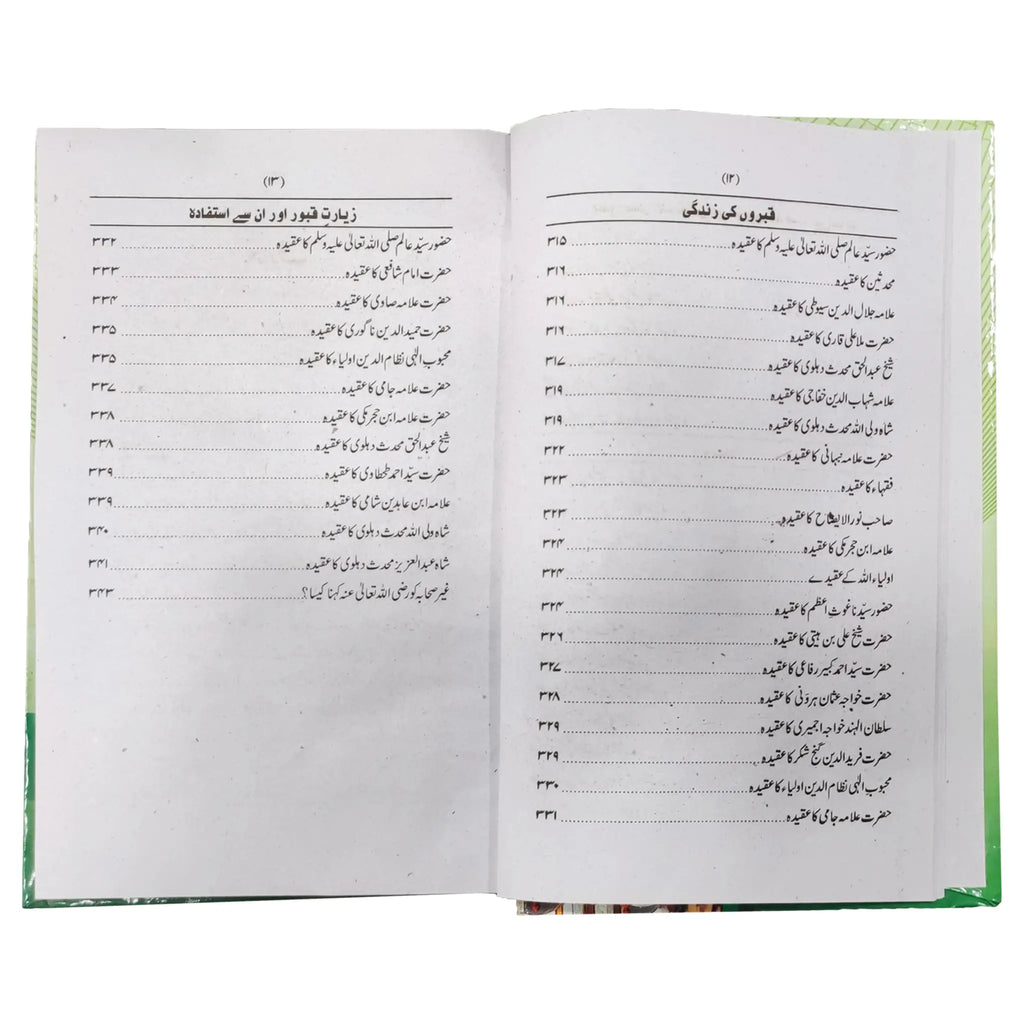 (۱۲)
قبروں کی زندگی
حضور سیّد عالم صلی اللہ تعالیٰ علیہ وسلم کا عقیدہ ۳۱۵
محدثین کا عقیدہ ۳۱۶
علامہ جلال الدین سیوطی کا عقیدہ ۳۱۶
حضرت ملا علی قاری کا عقیدہ ۳۱۶
شیخ عبدالحق محدث دہلوی کا عقیدہ ۳۱۷
علامہ شہاب الدین خفاجی کا عقیدہ ۳۱۹
شاہ ولی اللہ محدث دہلوی کا عقیدہ ۳۱۹
حضرت علامہ نبہانی کا عقیدہ ۳۲۲
فقہاء کا عقیدہ ۳۲۳
صاحب نور الایضاح کا عقیدہ ۳۲۳
علامہ ابن حجر مکی کا عقیدہ ۳۲۴
اولیاء اللہ کے عقیدے ۳۲۴
حضور سیّدنا غوث اعظم کا عقیدہ ۳۲۴
حضرت شیخ علی بن ہیتی کا عقیدہ ۳۲۶
حضرت سیّد احمد کبیر رفاعی کا عقیدہ ۳۲۷
حضرت خواجہ عثمان ہرونی کا عقیدہ ۳۲۸
سلطان الہند خواجہ اجمیری کا عقیدہ ۳۲۹
حضرت فرید الدین گنج شکر کا عقیدہ ۳۲۹
محبوب الٰہی نظام الدین اولیاء کا عقیدہ ۳۳۰
حضرت علامہ جامی کا عقیدہ ۳۳۱
(۱۳)
زیارتِ قبور اور ان سے استفادہ
حضور سیّد عالم صلی اللہ تعالیٰ علیہ وسلم کا عقیدہ ۳۳۲
حضرت امام شافعی کا عقیدہ ۳۳۳
حضرت علامہ صاوی کا عقیدہ ۳۳۴
حضرت حمید الدین ناگوری کا عقیدہ ۳۳۵
محبوب الٰہی نظام الدین اولیاء کا عقیدہ ۳۳۵
حضرت علامہ جامی کا عقیدہ ۳۳۷
حضرت علامہ ابن حجر مکی کا عقیدہ ۳۳۸
شیخ عبدالحق محدث دہلوی کا عقیدہ ۳۳۸
حضرت سیّد احمد طحطاوی کا عقیدہ ۳۳۹
علامہ ابن عابدین شامی کا عقیدہ ۳۳۹
شاہ ولی اللہ محدث دہلوی کا عقیدہ ۳۴۰
شاہ عبدالعزیز محدث دہلوی کا عقیدہ ۳۴۱
غیر صحابہ کو رضی اللہ تعالیٰ عنہ کہنا کیسا؟ ۳۴۳